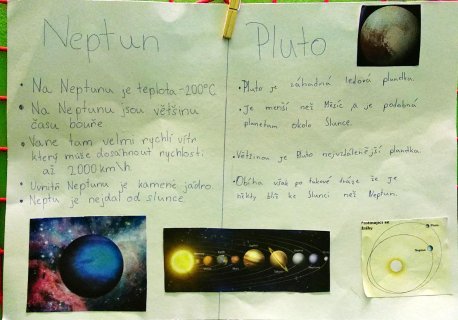 Neptun
• Na Neptunu je teplota -200°C
• Na Neptunu jsou většinu
času bouře
• Vane tam velmi rychlí vítr
který může dosáhnout rychlosti
až 2000 km\h
• Uvnitř Neptunu je kamené jádro.
• Neptu je nejdál od slunce
Pluto
• Pluto je záhadná ledová planetka.
• Je menší než Měsíc a je podobná
planetám okolo Slunce.
• Většinou je Pluto nejvzdálenější planetka.
• Obíha však po takové dráze že je
někdy blíž ke Slunci než Neptun.
Pluto
Neptun